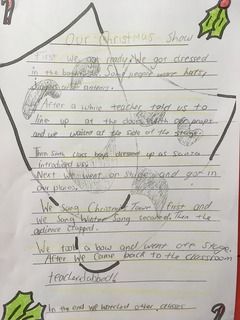 Our Christmas Show
First we got ready. We got dressed
in the bathroom. Some people wore hats,
After a while teacher told us to
line up at the door with our props
and we waited at the side of the stage.
Then Sixth class boys dressed up as Santa
introduced us!!
Next we went on stage and got in
our places.
We Sang Christmas Town first and
we Sang Winter Song second. Then the
audience clapped.
We took a bow and went off stage.
After we came back to the classroom
In the end we watched other classes